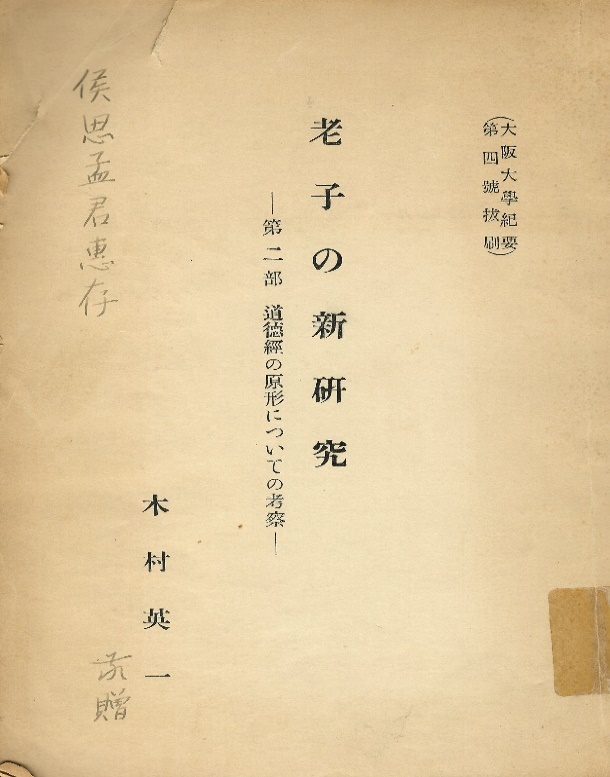 (大阪大學紀要
第四號拔刷)
老子の新研究
―第二部 道德經の原形についての考察―
木村英一
敬贈
侯思孟君惠存